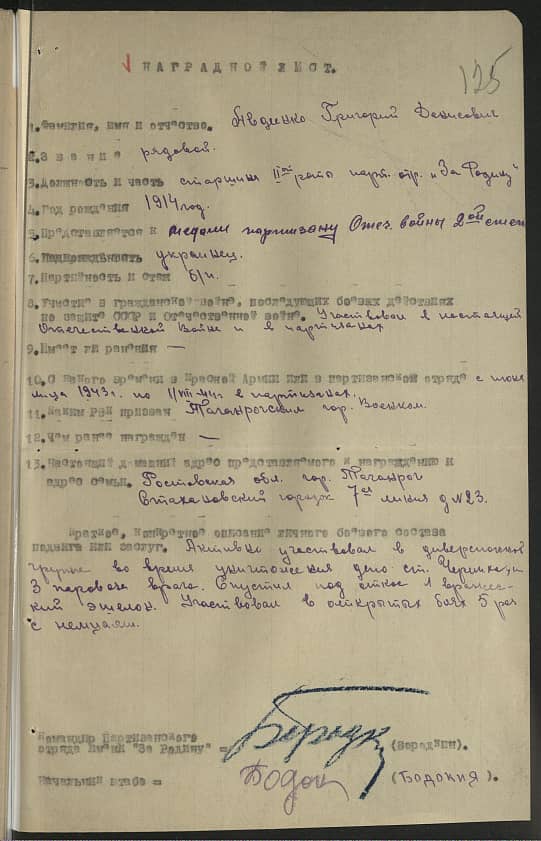 НАГРАДНОЙ ЛИСТ.
125
1. Фамилия, имя и отчество. Явдиенко Григорий Денисович
2. Звание рядовой.
3. Должность и часть старшина II роты парт. отр. "За Родину"
4. Год рождения 1914 год.
5. Представляется к медали партизану Отеч. войны 2ой степ
6. украинец.
7. Партийность и стаж б/п.
8. Участие в гражданской войне, последующих боевых действиях
по защите СССР и Отечественной войне. Участвовал в настоящей
Отечественной войне и в партизанах
9. Имеет ли ранения —
10. С какого времени в Красной Армии или в партизанской отряде с июня
м-ца 1943 г. по 1/VII-44г. в партизанах.
11. Каким РВК призван Таганрогским гор. Военком.
12. Чем ранее награжден —
13. Настоящий домашний адрес представляемого к награждению и
адрес семьи. Ростовская обл. гор. Таганрог
Стахановский городок 7ая линия д №23.
Краткое, конкретное описание личного боевого состава
подвига или заслуг. Активно участвовал в диверсионной
группе во время уничтожения депо ст. и
3 паровоза врага. Спустил под откос 1 вражес-
кий эшелон. Участвовал в открытых боях 5 раз
с немцами.
Командир Партизанского
отряда имени "За Родину" = (Бородкин).
Начальник штаба = (Бодокия).